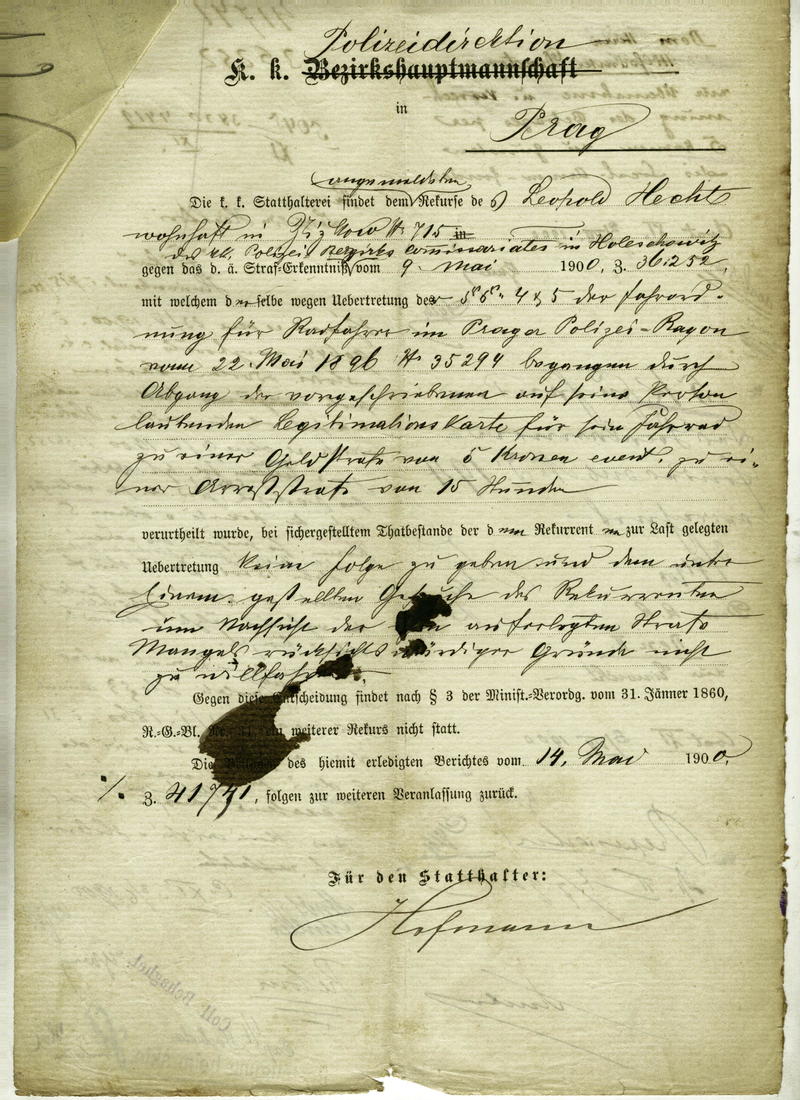 Polizeidirektion
K. k. Bezirkshauptmannschaft
in
Prag
angemeldeten
Die k. k. Statthalterei findet dem Rekurse des Leopold Hecht
wohnhaft in Žižkow N 715 in
des kk. Polizei Bezirks Commissariates in Holeschowitz
gegen das d. ä. Straf-Erkenntniß vom 9. Mai 1900, Z. 36.252,
mit welchem derselbe wegen Uebertretung der §§ 4 & 5 der Fahrord-
nung für Radfahrer im Prager Polizei-Rayon
vom 22. Mai 1896 N 35294 begangen durch
Abgang der vorgeschriebenen auf seine Person
lautenden Legitimationskarte für sein Fahrrad
zu einer Geldstrafe von 5 Kronen event. zu ei-
ner Arreststrafe von 15 Stunden
verurtheilt wurde, bei sichergestelltem Thatbestande der dem Rekurrenten zur Last gelegten
Uebertretung keine Folge zu geben und dem unter
Einem gestellten Gesuche des Rekurrenten
um Nachsicht der auferlegten Strafe
Mangels rücksichtswürdiger Gründe nicht
zu willfahren.
Gegen diese Entscheidung findet nach § 3 der Minist.-Verordg. vom 31. Jänner 1860,
R.-G.-Bl. Nr. 31, ein weiterer Rekurs nicht statt.
Die Beilagen des hiemit erledigten Berichtes vom 14. Mai 1900,
Z. 41741, folgen zur weiteren Veranlassung zurück.
Für den Statthalter:
Hofmann